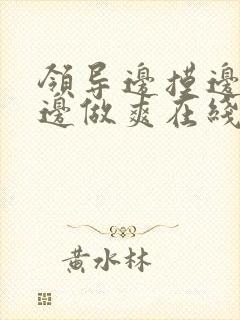 領导邊摸邊
邊做爽在綫
黃水林